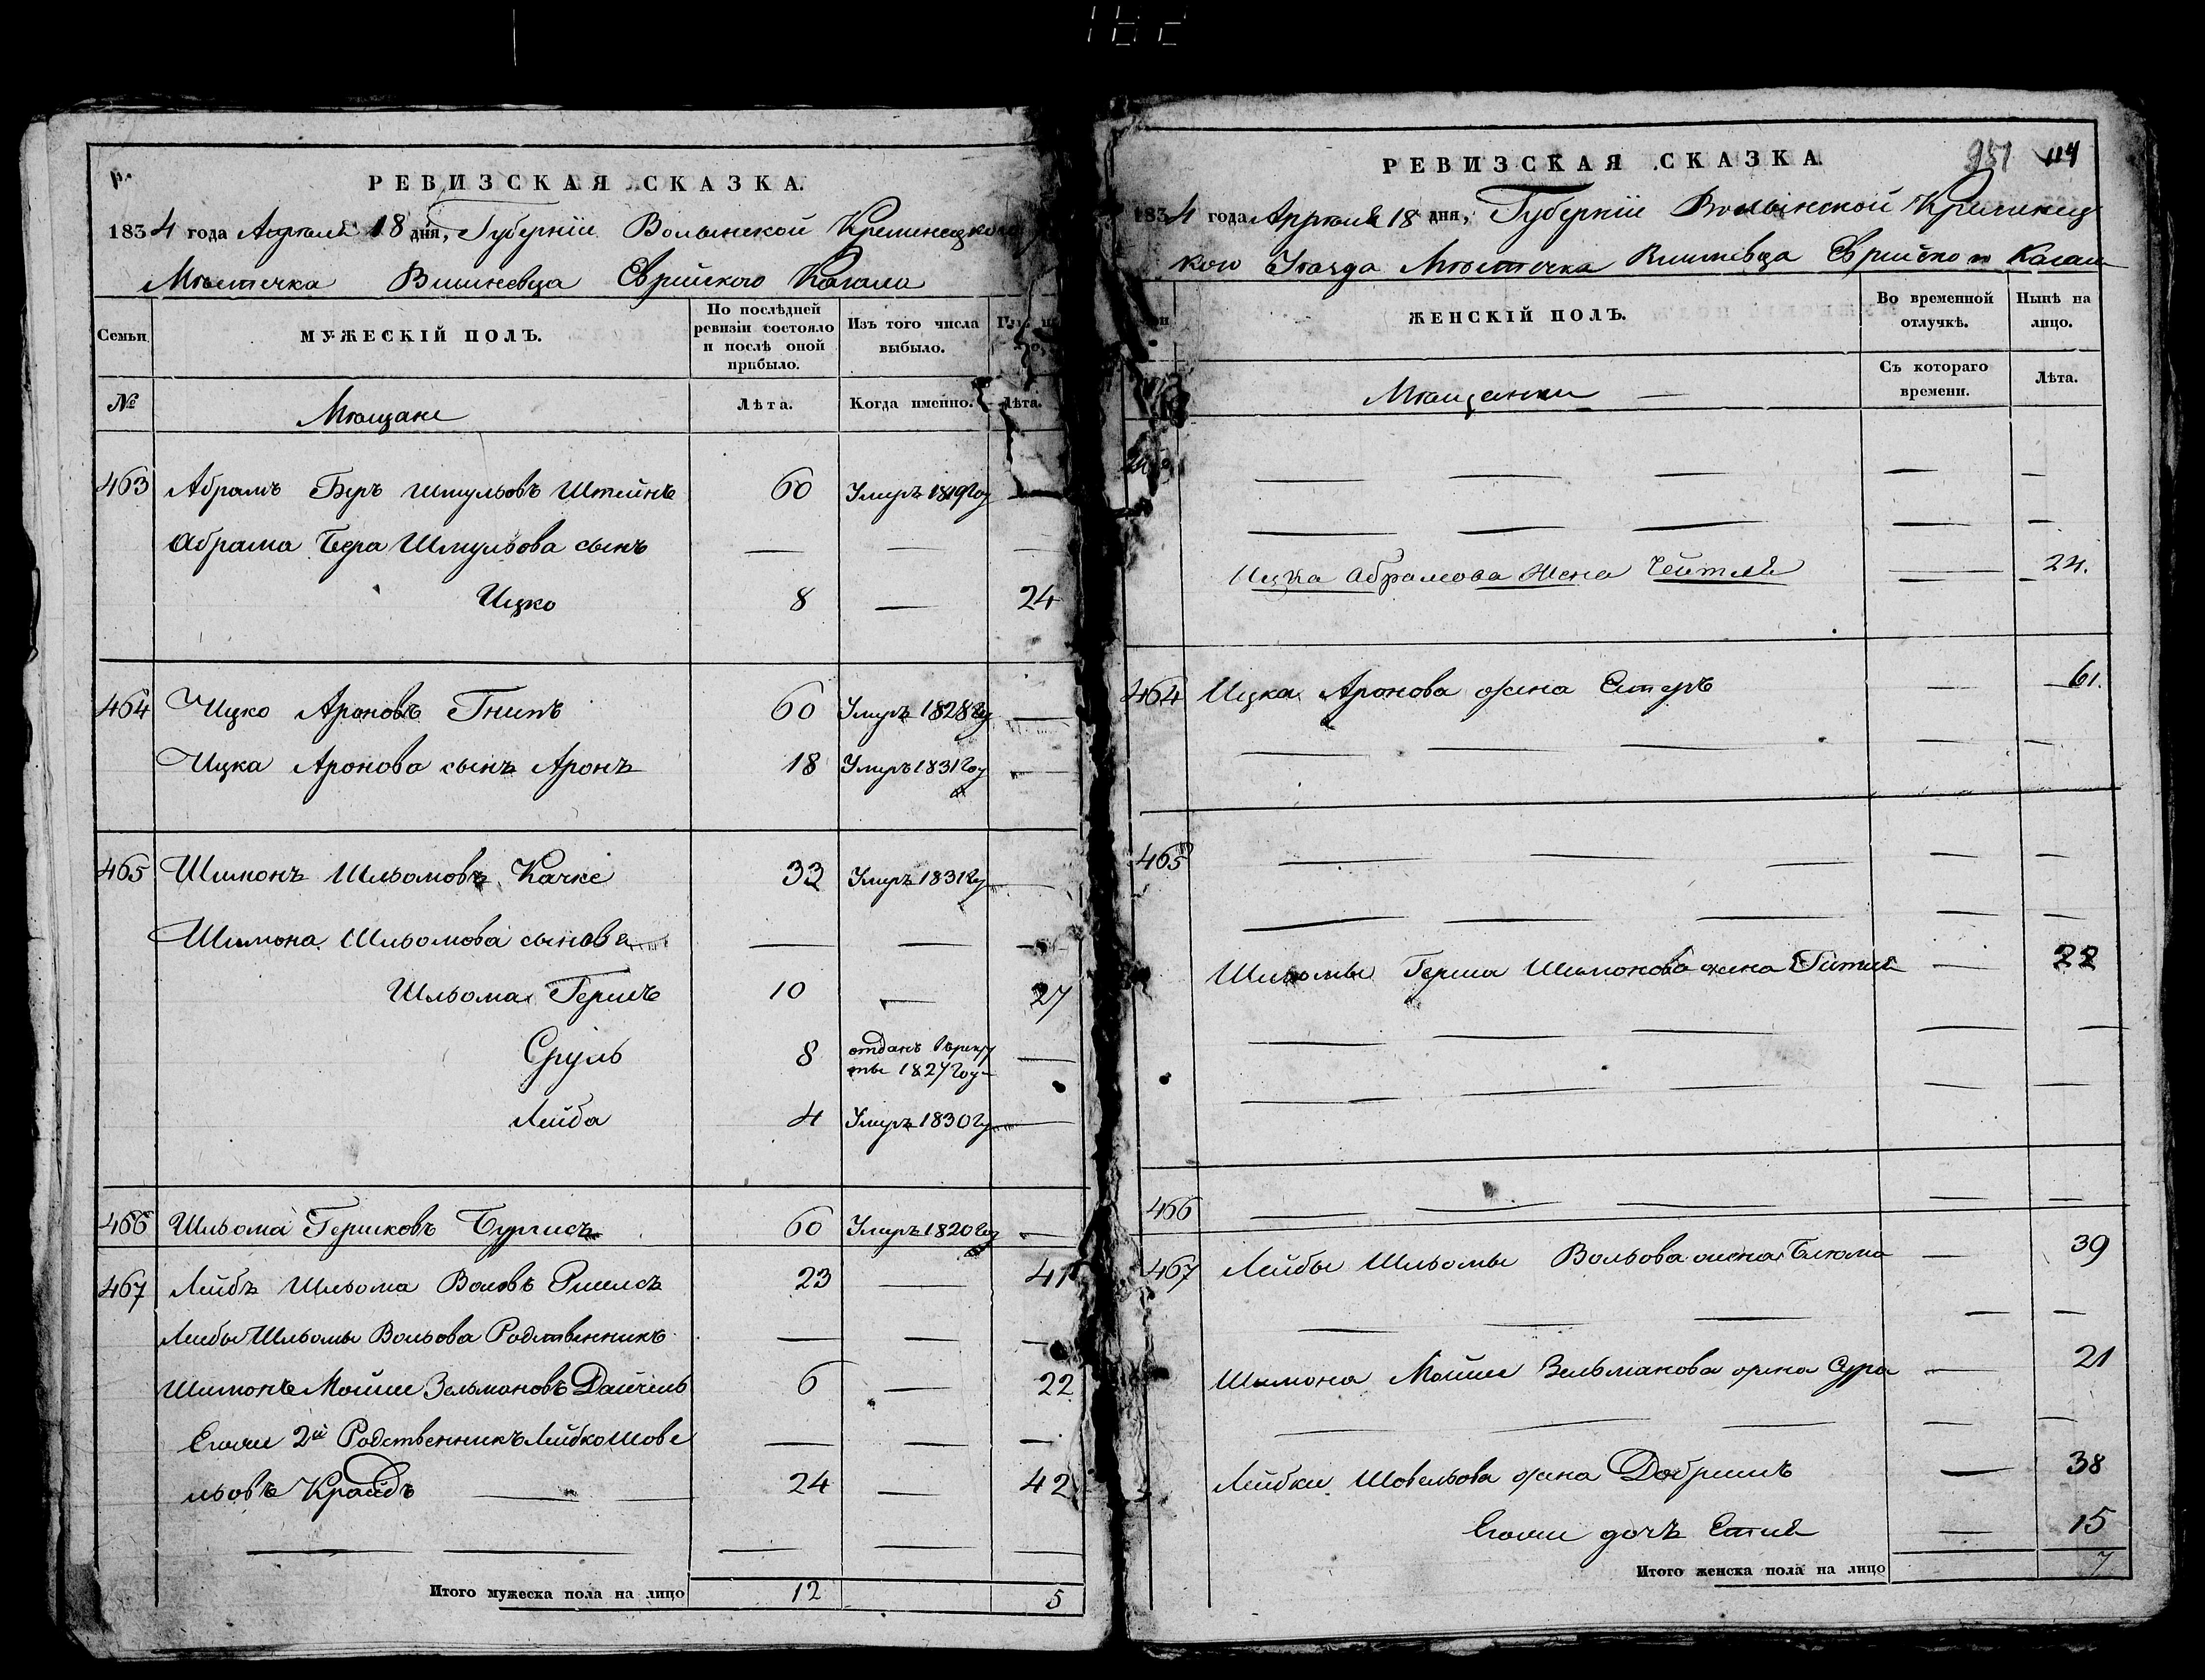 РЕВИЗСКАЯ СКАЗКА.
1834 года Апреля 18 дня, Губерніи Волынской Кременецкого
Мѣстечка Вишневца Еврейского Кагала
Семьи
МУЖЕСКІЙ ПОЛЪ.
По послѣдней ревизіи состояло и послѣ оной прибыло.
Изъ того числа выбыло.
№
Мѣщане
Лѣта.
Когда именно.
Лѣта.
463 Абрамъ Беръ Шмульовъ Штейнъ 60 Умеръ 1819 году —
Абрама Бера Шмульова сынъ — — —
Ицко 8 — 24
464 Ицко Ароновъ Гнипъ 60 Умеръ 1828 году —
Ицка Аронова сынъ Аронъ 18 Умеръ 1831 году —
465 Шимонъ Шльомовъ Качке 33 Умеръ 1831 году —
Шимона Шльомова сынове — — —
Шльома Гершъ 10 — 27
Сруль 8 отданъ в рекру
ты 1827 году —
Лейба 4 Умеръ 1830 году —
466 Шльома Гершковъ 60 Умеръ 1820 году —
467 Лейбъ Шльома Волковъ 23 — 41
Лейбы Шльомы Вольова Родственникъ — — —
Шимонъ Мойше Зельмановъ 6 — 22
Егоже 2й Родственникъ Лейбко Шове — — —
льовъ Крайдъ 24 — 42
Итого мужеска пола на лицо 12 5
РЕВИЗСКАЯ СКАЗКА
951 114
1834 года Апреля 18 дня, Губерніи Волынской Кременец
кого Уезда Мѣстечка Вишневца Еврейского Кагала
ЖЕНСКІЙ ПОЛЪ.
Во временной отлучкѣ.
Нынѣ на лицо.
Мѣщанки —
Съ котораго времени.
Лѣта.
Ицка Абрамова жена Чейтля — 24.
464 Ицка Аронова жена Естеръ — 61.
465
Шльомы Герша Шимонова жена Гитля — 22
466
467 Лейбы Шльомы Вольова жена Блюма — 39
Шимона Мойше Зельманова жена Сура — 21
Лейбки Шовельова жена Добришъ — 38
Егоже дочъ Етля — 15
Итого женска пола на лицо 7